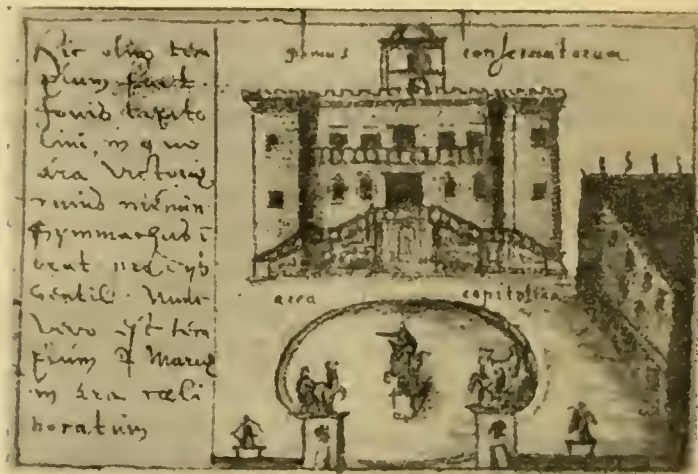 Hic olim tem
plum fuit
Jovis capito
lini, in quo
ara Victoriæ
cuius
Symmachus
erat
Gentil.
vero est tem
plum S. Mariæ
in ara cæli
noratum
domus conservatorum
area capitolina